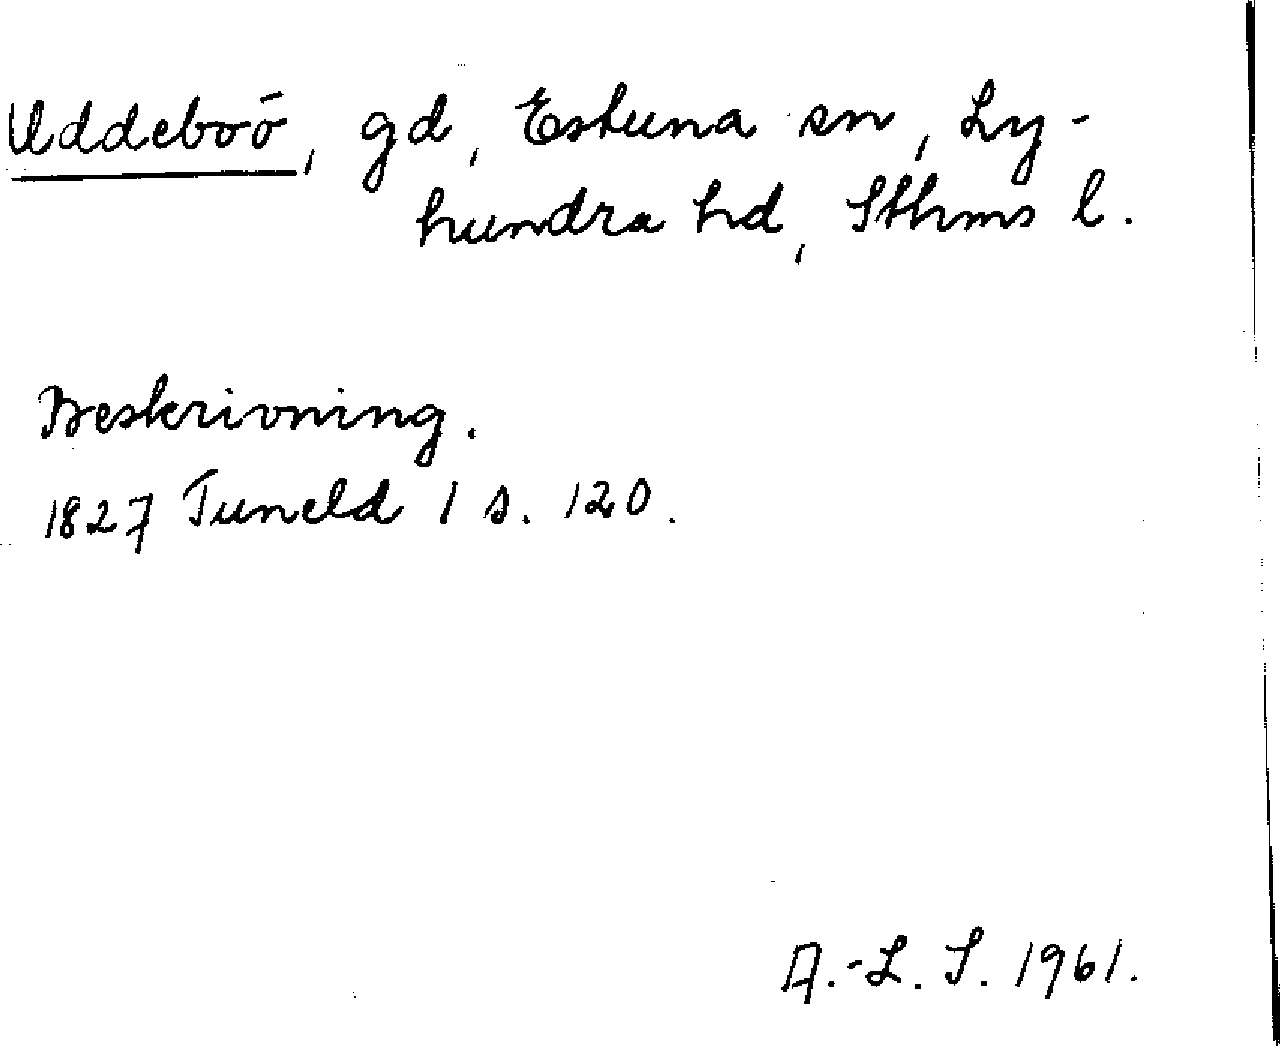 Uddeboö, gd, Estuna sn, Ly-
hundra hd, Sthms l.
Beskrivning.
1827 Tuneld 1 s. 120.
A.-L. S. 1961.